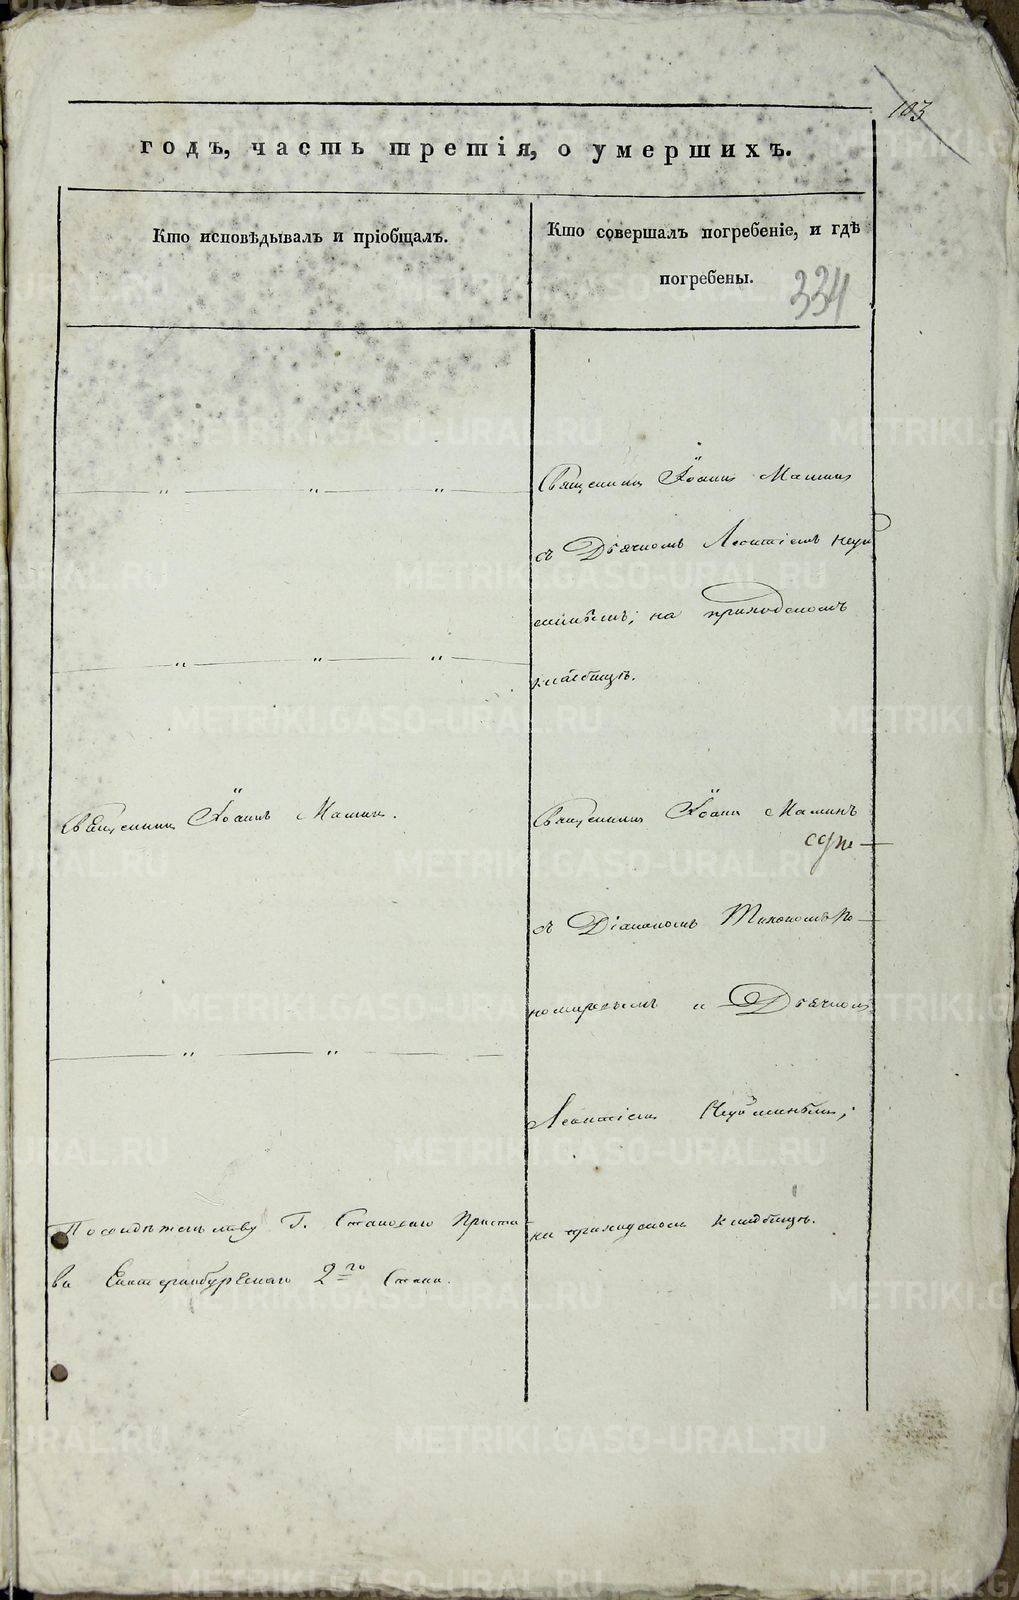 103
годъ, часть третія, о умершихъ.
Кто исповѣдывалъ и пріобщалъ.
Кто совершалъ погребеніе, и гдѣ
погребены.
334
Священникъ Іоаннъ Маминъ
съ Дьячкомъ Леонтіемъ Неуй
минымъ; на приходскомъ
кладбищѣ.
Священникъ Іоаннъ Маминъ.
Священникъ Іоаннъ Маминъ
съ Діакономъ Тихономъ По-
номаревымъ и Дьячкомъ
Неуйминымъ;
По отношенію Г. Становаго Приста-
ва Екатеринбургскаго 2го Стана.
на приходскомъ кладбищѣ.
METRIKI.GASO-URAL.RU